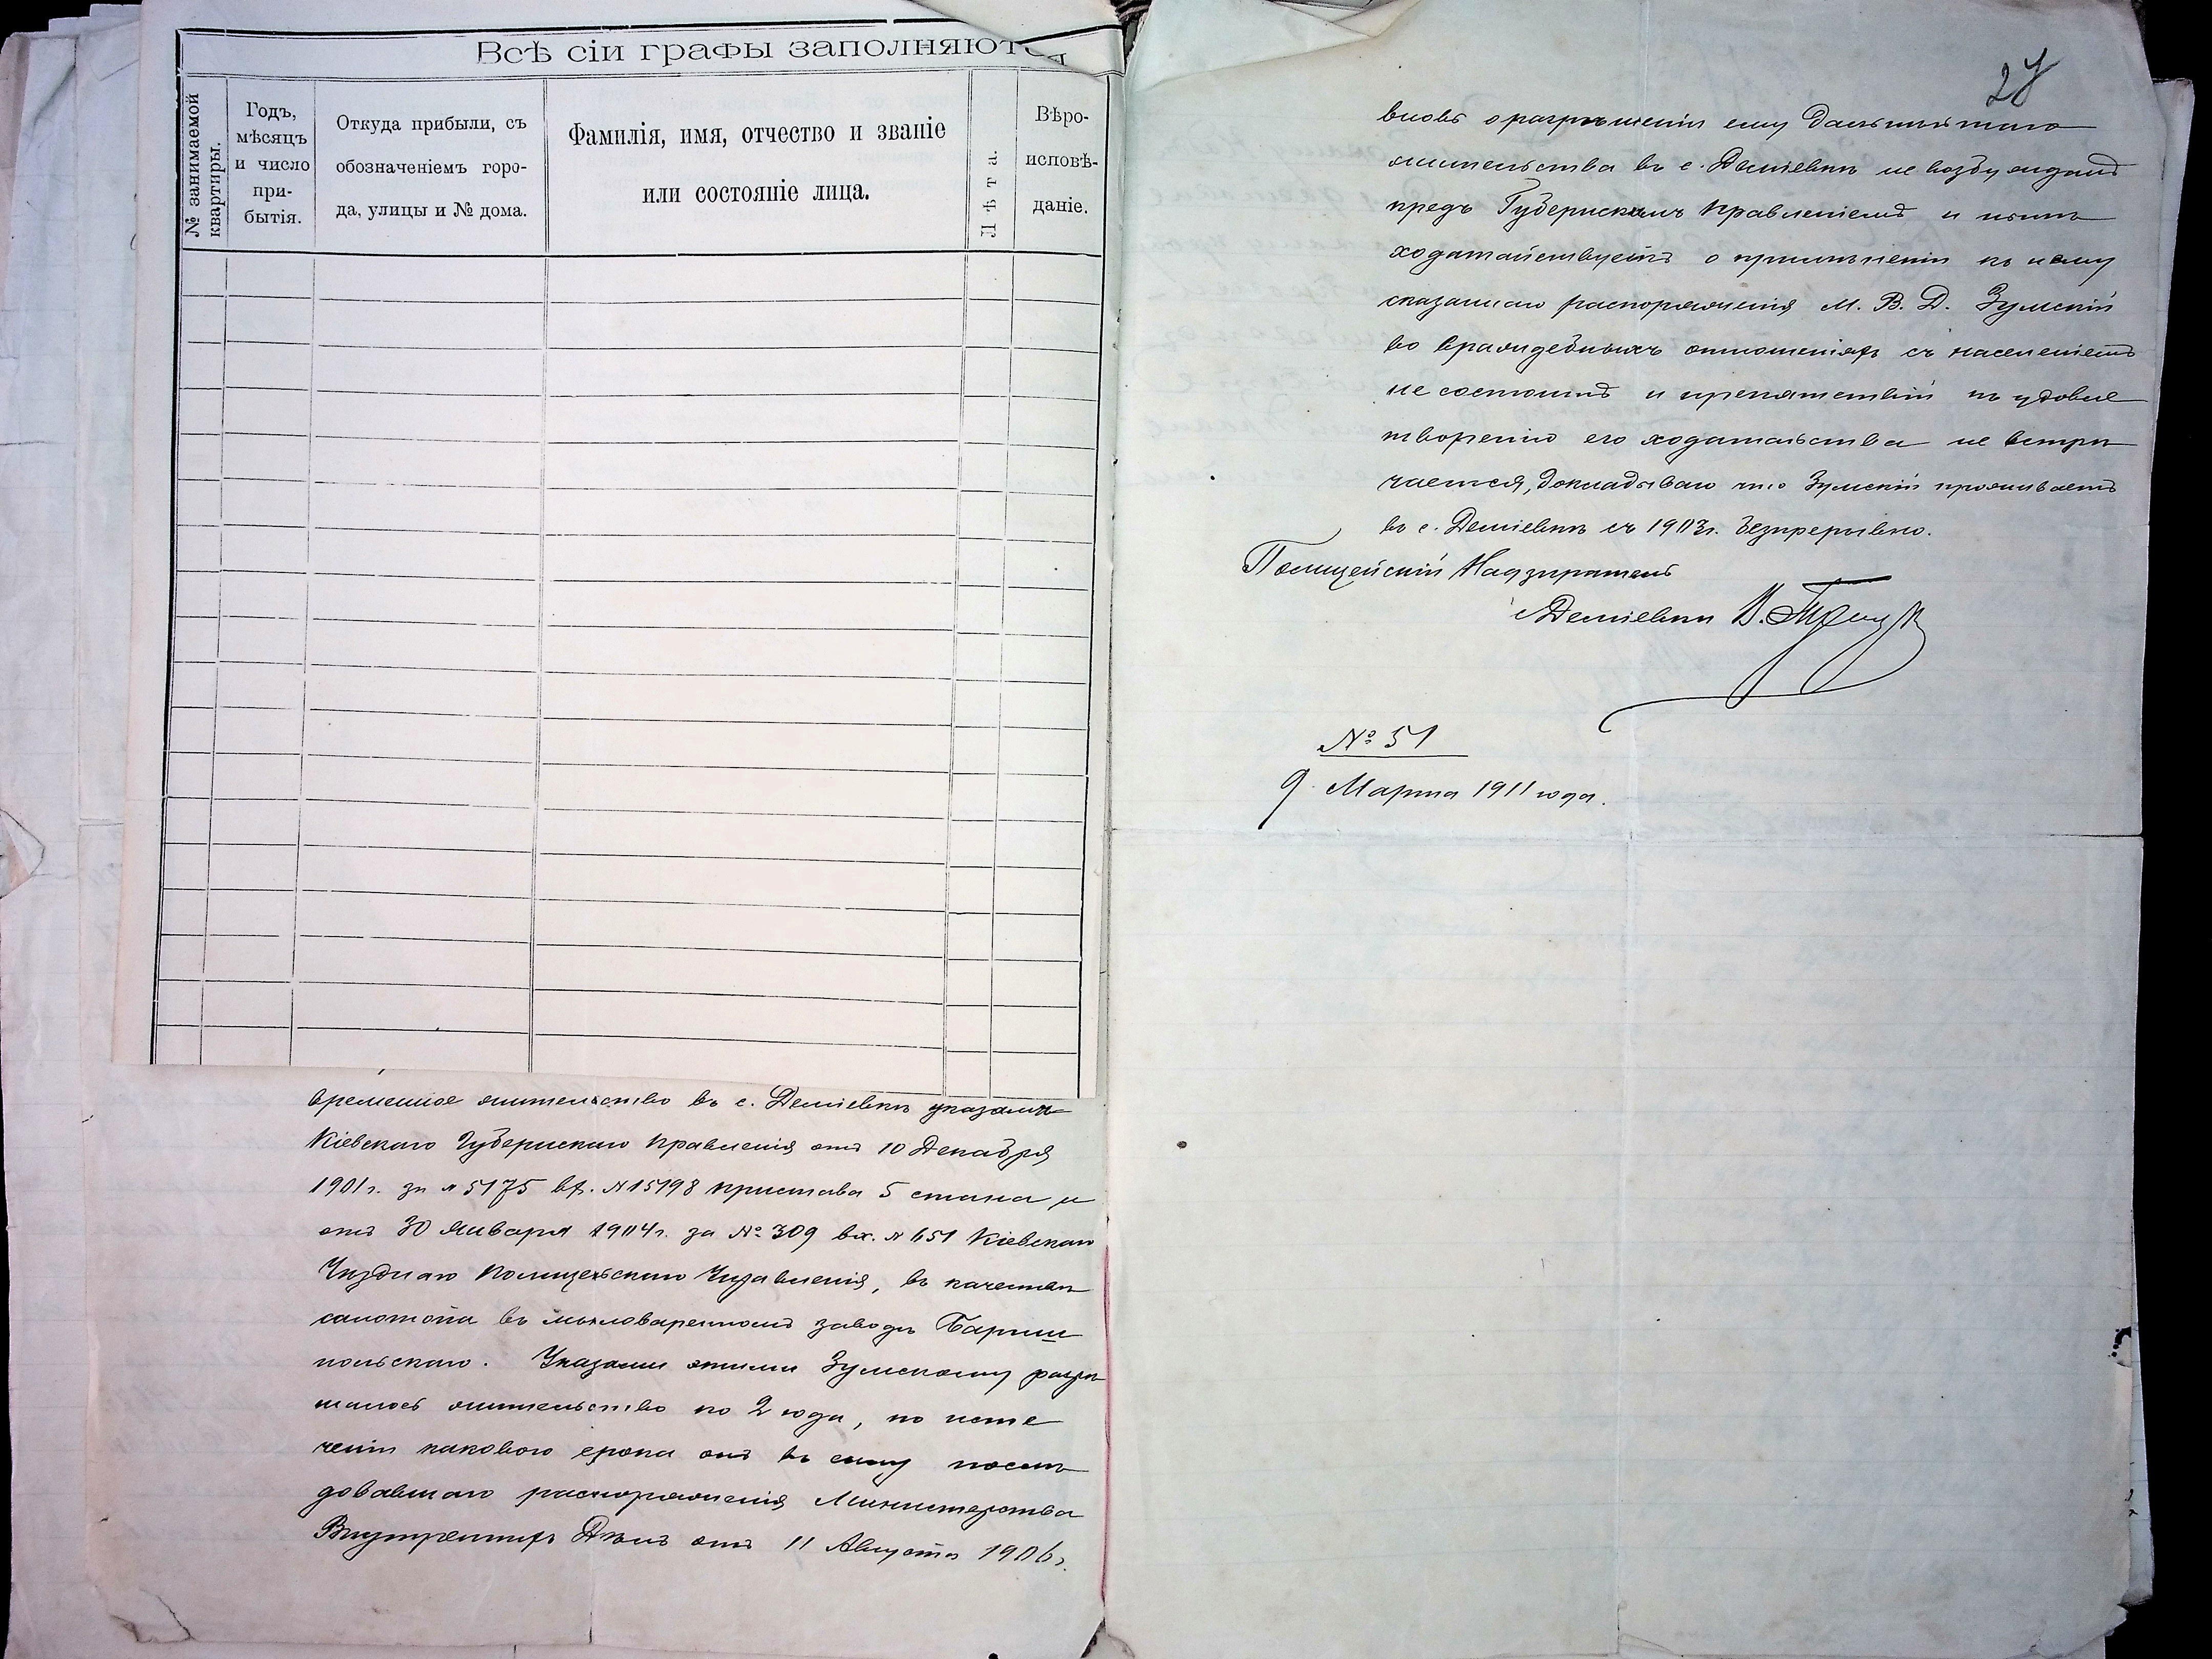 Всѣ сіи графы заполняются
№ занимаемой квартиры.
Годъ, мѣсяцъ и число прибытія.
Откуда прибыли, съ обозначеніемъ города, улицы и № дома.
Фамилія, имя, отчество и званіе или состояніе лица.
Лѣта.
Вѣроисповѣданіе.
временное жительство въ с. Деміевкѣ указами
Кіевскаго Губернскаго Правленія отъ 10 Декабря
1901 г. за № 5175 вх. № 15198 пристава 5 стана и
отъ 30 Января 1904 г. за № 309 вх. № 651 Кіевскаго
Уѣзднаго Полицейскаго Управленія, въ качествѣ
салотопа въ мыловаренномъ заводѣ Барыш
польскаго. Указами этими Зумскому разрѣ
шалось жительство по 2 года, по исте
ченіи каковаго срока онъ въ силу послѣ
довавшаго распоряженія Министерства
Внутреннихъ Дѣлъ отъ 11 Августа 1906 г.
27
вновь о разрѣшеніи ему дальнѣйшаго
жительства въ с. Деміевкѣ не возбуждалъ
предъ Губернскимъ Правленіемъ и нынѣ
ходатайствуетъ о примѣненіи къ нему
сказаннаго распоряженія М. В. Д. Зумскій
во враждебныхъ отношеніяхъ съ населеніемъ
не состоитъ и препятствій къ удовле
творенію его ходатайства не встрѣ
чается, докладываю что Зумскій проживаетъ
въ с. Деміевкѣ съ 1903 г. безпрерывно.
Полицейскій Надзиратель
с. Деміевки В.
№ 51
9 Марта 1911 года.